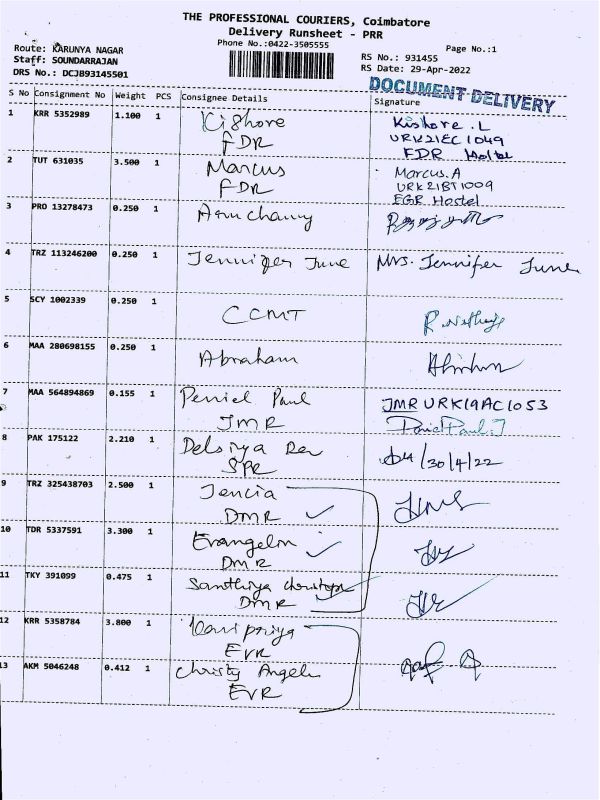 THE PROFESSIONAL COURIERS, Coimbatore
Delivery Runsheet - PRR
Phone No.:0422-3505555
Page No.:1
Route: KARUNYA NAGAR
Staff: SOUNDARRAJAN
DRS No.: DCJB93145501
RS No.: 931455
RS Date: 29-Apr-2022
DOCUMENT DELIVERY
S No Consignment No Weight PCS Consignee Details Signature
1 KRR 5352989 1.100 1 Kishore Kishore . L
URK21EC1049
FDR FDR Hostel
2 TUT 631035 3.500 1 Marcus Marcus. A
URK21BT1009
FDR EGR Hostel
3 PRO 13278473 0.250 1
4 TRZ 113246200 0.250 1 Jennifer June Mrs. Jennifer June
5 SCY 1002339 0.250 1 CCMT
6 MAA 280698155 0.250 1 Abraham
7 MAA 564894869 0.155 1 Peniel Paul JMR URK19AC1053
JMR
8 PAK 175122 2.210 1 Delsiya 30/4/22
SPR
9 TRZ 325438703 2.500 1 Jencia
DMR
10 TDR 5337591 3.300 1 Evangelin
DMR
11 TKY 391099 0.475 1 Santhiya
DMR
12 KRR 5358784 3.800 1
EVR
13 AKM 5046248 0.412 1 Christy
EVR